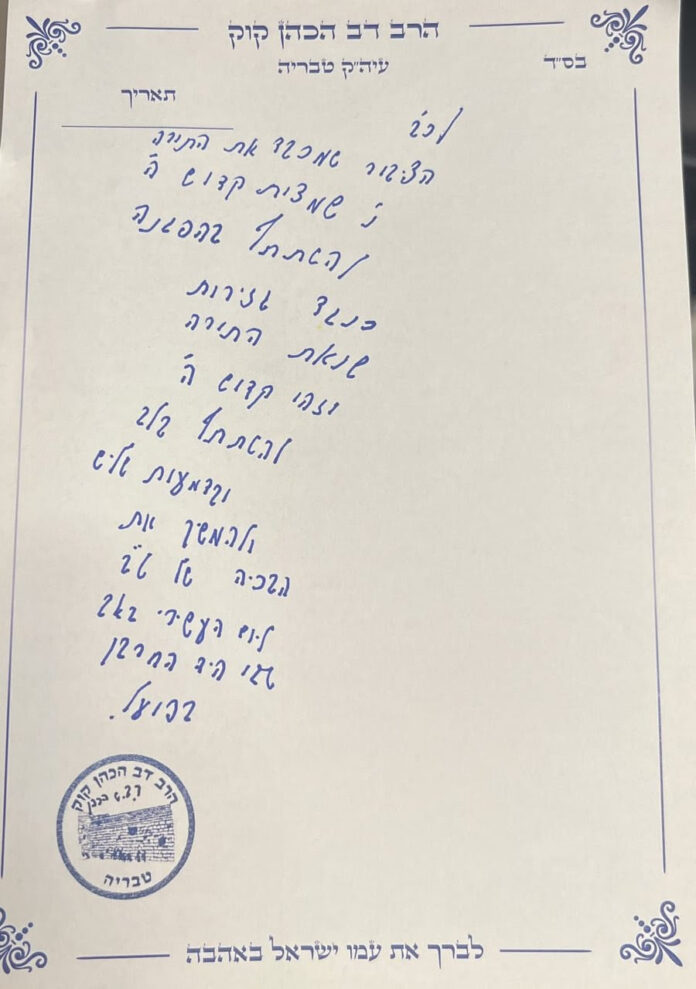 הרב דב הכהן קוק
עיה״ק טבריה
בס״ד
תאריך
לכב׳
הציבור שמכבד את התורה
נ׳ שמצות קדוש ה׳
להשתתף בהפגנה
כנגד גזירות
שנאת התורה
וזהו קדוש ה׳
להשתתף בלב
ובדמעות שליש
ולהמשיך את
הבכיה של ט״ב
ליום העשירי באב
שבו היה החרבן
בפועל.
הרב דב הכהן קוק
טבריה
לברך את עמו ישראל באהבה